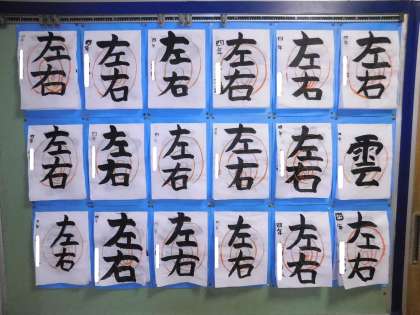 左右
左右
左右
左右
左右
左右
左右
左右
左右
左右
左右
雲
左右
左右
左右
左右
左右
左右